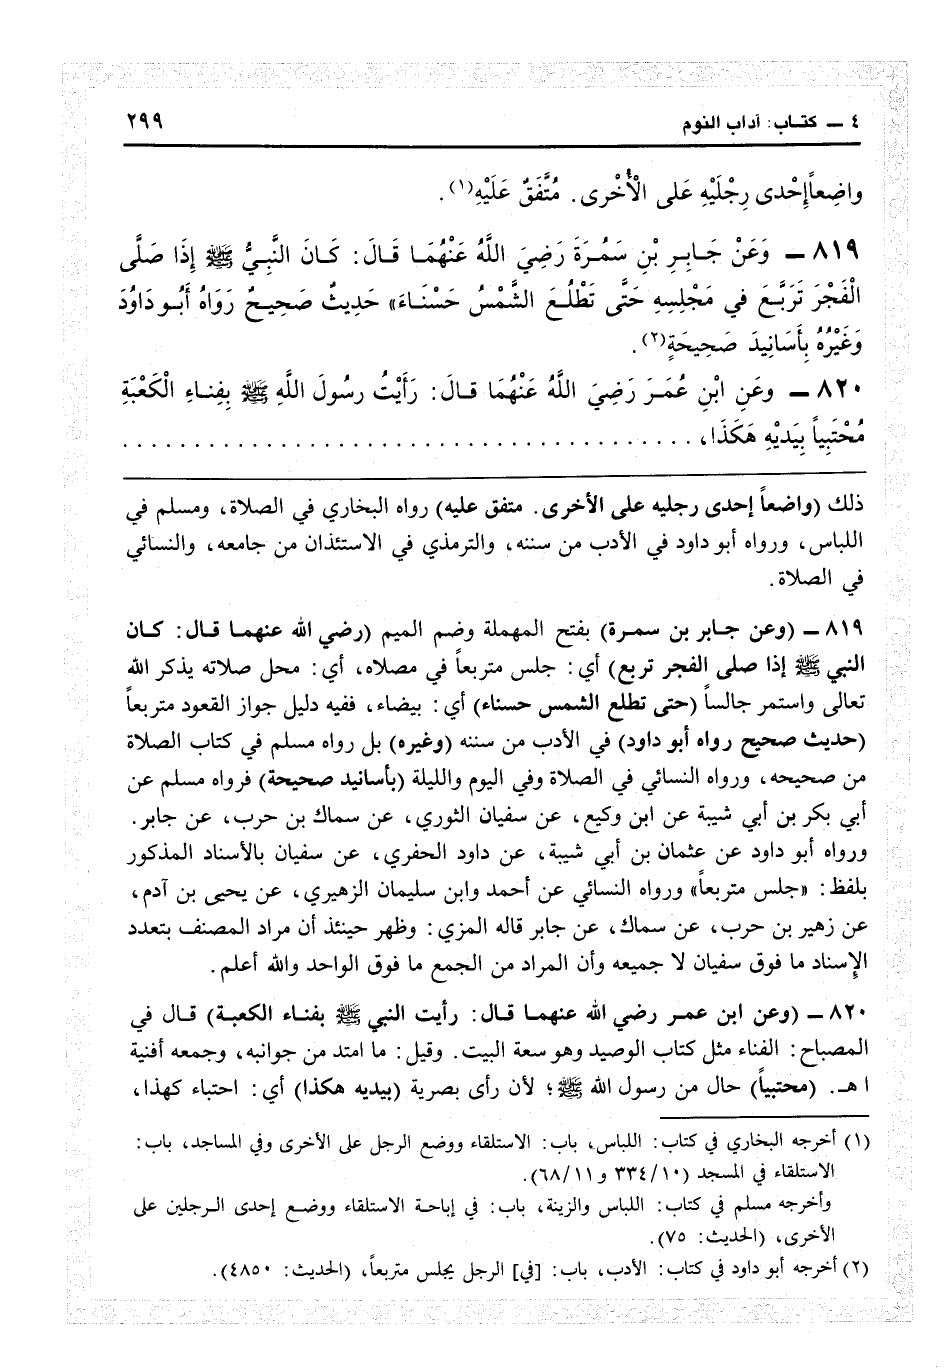 ٤ ـ كتاب: آداب النوم ٢٩٩
واضِعاً إِحْدى رِجْلَيْهِ عَلى الْأُخْرى. مُتَّفَقٌ عَلَيْهِ(١).
٨١٩ ـ وَعَنْ جَابِرِ بْنِ سَمُرَةَ رَضِيَ اللَّهُ عَنْهُمَا قَالَ: كَانَ النَّبِيُّ ﷺ إِذَا صَلَّى
الْفَجْرَ تَرَبَّعَ في مَجْلِسِهِ حَتَّى تَطْلُعَ الشَّمْسُ حَسْنَاءَ» حَدِيثٌ صَحِيحٌ رَوَاهُ أَبُو دَاوُدَ
وَغَيْرُهُ بِأَسَانِيدَ صَحِيحَةٍ(٢).
٨٢٠ ـ وعَنِ ابْنِ عُمَرَ رَضِيَ اللَّهُ عَنْهُمَا قالَ: رَأَيْتُ رسُولَ اللَّهِ ﷺ بِفِناءِ الْكَعْبَةِ
مُحْتَبِياً بِيَدَيْهِ هَكَذَا، . . . . . . . . . . . . . . . . . . . . . . . . . . . . . . . . . . . . . . . .
ذلك (واضعاً إحدى رجليه على الأخرى. متفق عليه) رواه البخاري في الصلاة، ومسلم في
اللباس، ورواه أبو داود في الأدب من سننه، والترمذي في الاستئذان من جامعه، والنسائي
في الصلاة.
٨١٩ ـ (وعن جابر بن سمرة) بفتح المهملة وضم الميم (رضي الله عنهما قال: كان
النبي ﷺ إذا صلى الفجر تربع) أي: جلس متربعاً في مصلاه، أي: محل صلاته يذكر الله
تعالى واستمر جالساً (حتى تطلع الشمس حسناء) أي: بيضاء، ففيه دليل جواز القعود متربعاً
(حديث صحيح رواه أبو داود) في الأدب من سننه (وغيره) بل رواه مسلم في كتاب الصلاة
من صحيحه، ورواه النسائي في الصلاة وفي اليوم والليلة (بأسانيد صحيحة) فرواه مسلم عن
أبي بكر بن أبي شيبة عن ابن وكيع، عن سفيان الثوري، عن سماك بن حرب، عن جابر.
ورواه أبو داود عن عثمان بن أبي شيبة، عن داود الحفري، عن سفيان بالأسناد المذكور
بلفظ: «جلس متربعاً» ورواه النسائي عن أحمد وابن سليمان الزهيري، عن يحيى بن آدم،
عن زهير بن حرب، عن سماك، عن جابر قاله المزي: وظهر حينئذ أن مراد المصنف بتعدد
الإسناد ما فوق سفيان لا جميعه وأن المراد من الجمع ما فوق الواحد والله أعلم.
٨٢٠ ـ (وعن ابن عمر رضي الله عنهما قال: رأيت النبي ﷺ بفناء الكعبة) قال في
المصباح: الفناء مثل كتاب الوصيد وهو سعة البيت. وقيل: ما امتد من جوانبه، وجمعه أفنية
ا هـ. (محتبياً) حال من رسول الله ﷺ؛ لأن رأى بصرية (بيديه هكذا) أي: احتباء كهذا،
(١) أخرجه البخاري في كتاب: اللباس، باب: الاستلقاء ووضع الرجل على الأخرى وفي المساجد، باب:
الاستلقاء في المسجد (٣٣٤/١٠ و٦٨/١١).
وأخرجه مسلم في كتاب: اللباس والزينة، باب: في إباحة الاستلقاء ووضع إحدى الرجلين على
الأخرى، (الحديث: ٧٥).
(٢) أخرجه أبو داود في كتاب: الأدب، باب: [في] الرجل يجلس متربعاً، (الحديث: ٤٨٥٠).